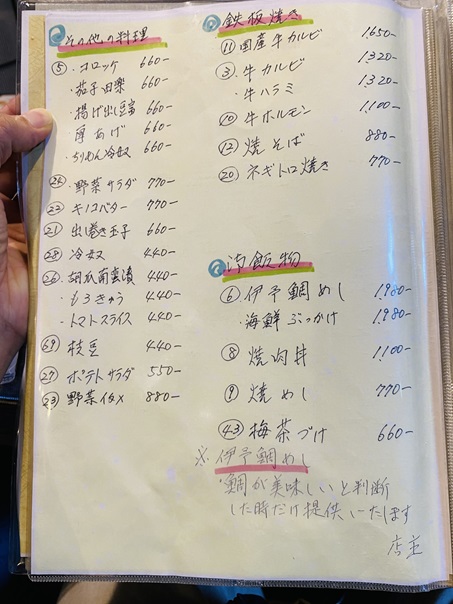 その他の料理
⑤・コロッケ 660-
・茄子田楽 660-
・揚げ出し豆腐 660-
・厚あげ 660-
・ちりめん冷奴 660-
㉔・野菜サラダ 770-
㉒・キノコバター 770-
㉑ 出し巻き玉子 660-
㉘ 冷奴 440-
㉖・胡瓜南蛮漬 440-
・もろきゅう 440-
・トマトスライス 440-
69 枝豆 440-
㉗ ポテトサラダ 550-
㉓ 野菜イタメ 880-
鉄板焼き
⑪ 国産牛カルビ 1,650-
③・牛カルビ 1,320-
・牛ハラミ 1,320-
⑩・牛ホルモン 1,100-
⑫ 焼そば 880-
⑳ ネギトロ焼き 770-
御飯物
⑥ 伊予鯛めし 1,980-
・海鮮ぶっかけ 1,980-
⑧ 焼肉丼 1,100-
⑨ 焼めし 770-
㊸ 梅茶づけ 660-
※伊予鯛めし
・鯛が美味しいと判断
した時だけ提供いたします
店主